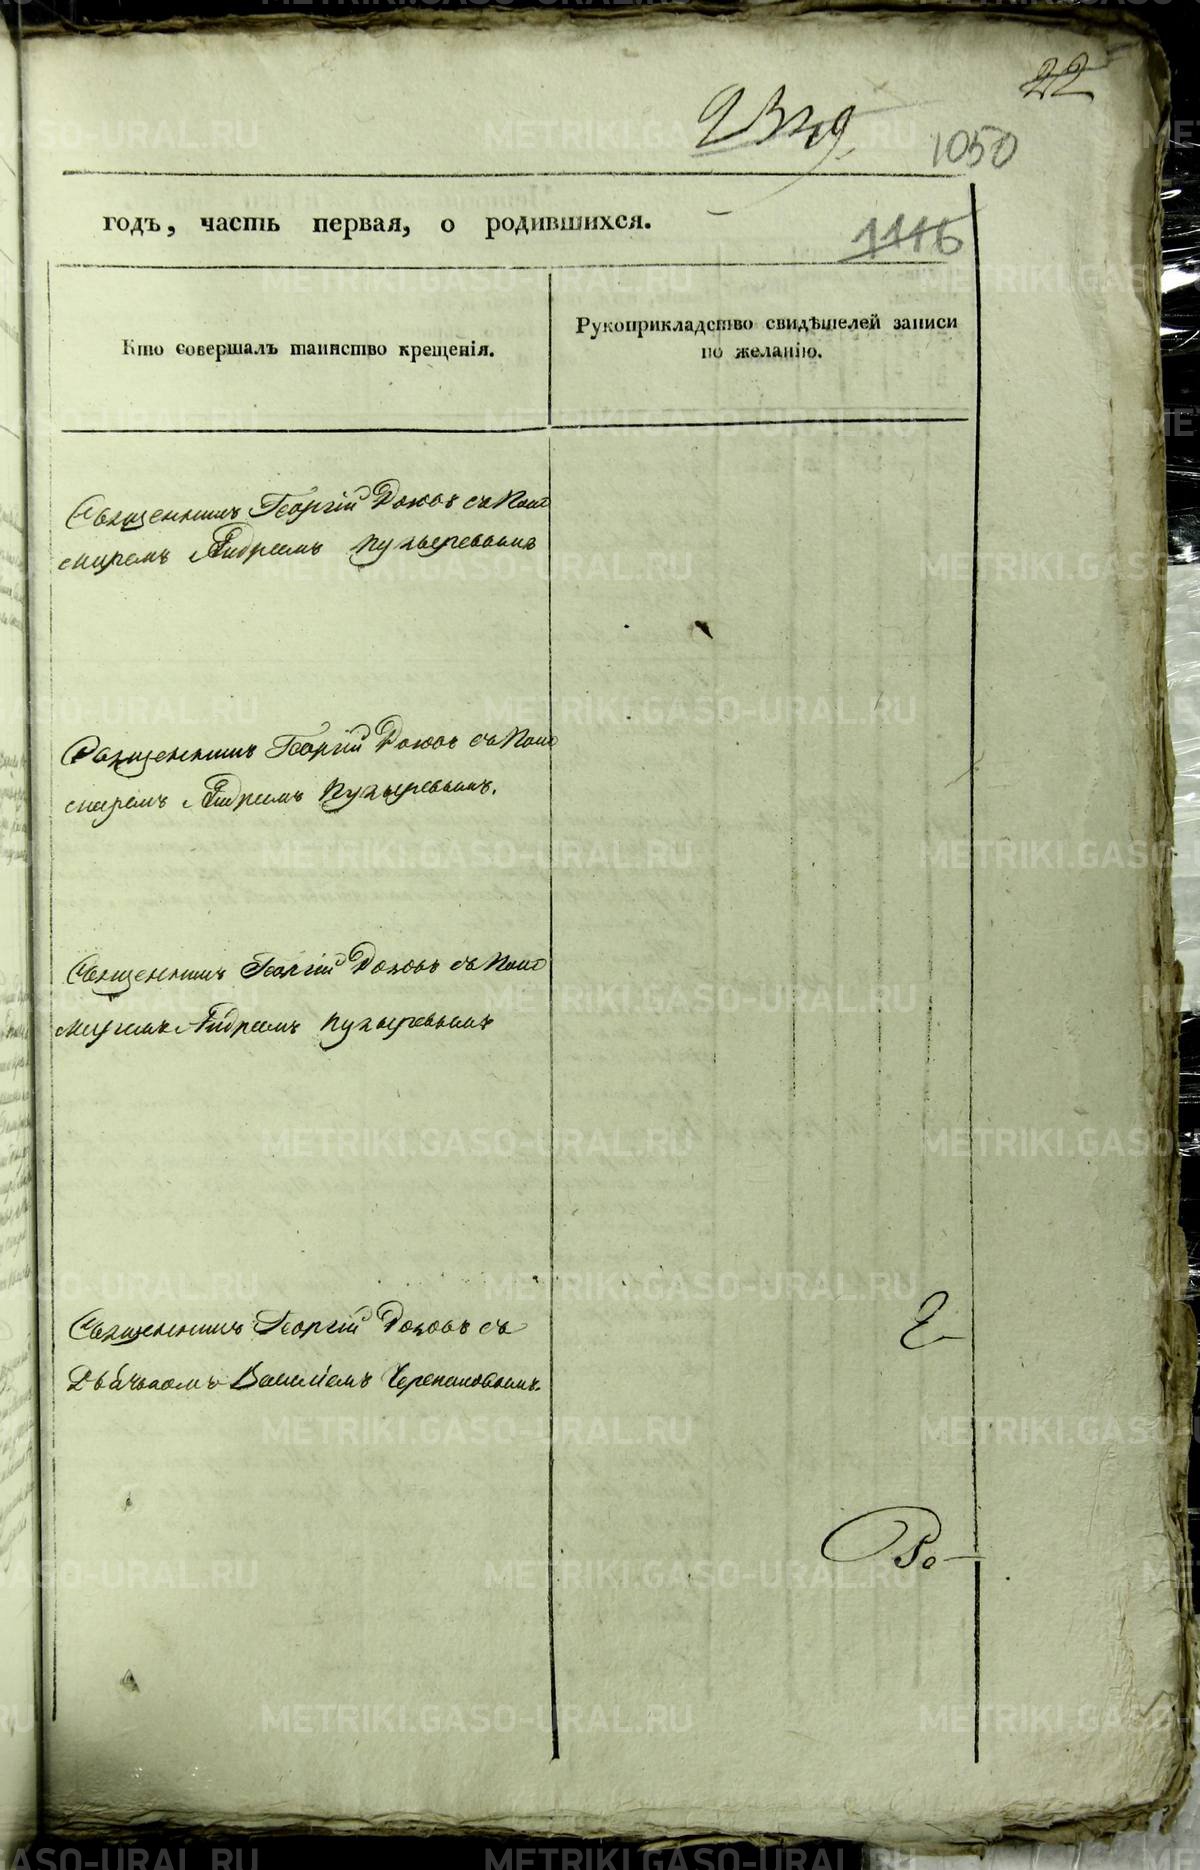 22
1050
годъ, часть первая, о родившихся.
1116
Кто совершалъ таинство крещенія.
Рукоприкладство свидѣтелей записи
по желанію.
Священникъ Георгій съ Поно
маремъ Андреемъ Пузыревымъ
Священникъ Георгій съ Поно
маремъ Андреемъ Пузыревымъ.
Священникъ Георгій съ Поно
маремъ Андреемъ Пузыревымъ
Священникъ Георгій съ
Дьячкомъ Василіемъ Черепановымъ.
METRIKI.GASO-URAL.RU